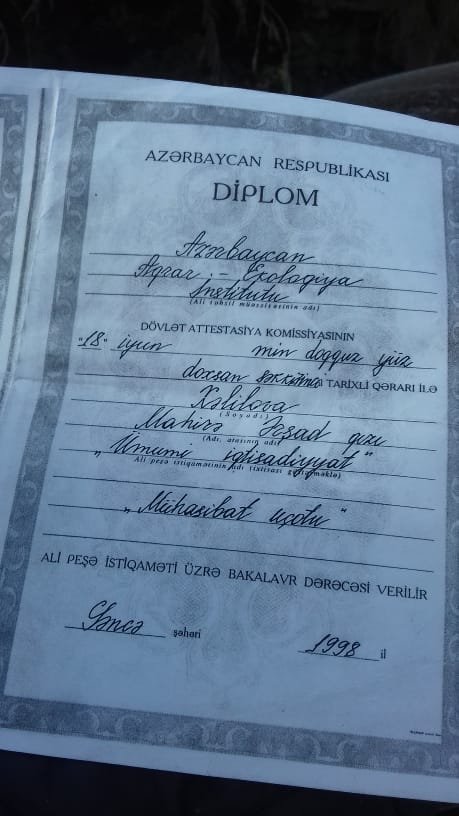 AZƏRBAYCAN RESPUBLİKASI
DİPLOM
Azərbaycan
Aqrar - Ekologiya
İnstitutu
(Ali təhsil müəssisəsinin adı)
DÖVLƏT ATTESTASİYA KOMİSSİYASININ
"18" iyun min doqquz yüz
doxsan səkkizinci TARİXLİ QƏRARI İLƏ
Xəlilova
(Soyadı)
Mahirə Əsəd qızı
(Adı, atasının adı)
"Ümumi iqtisadiyyat"
Ali peşə istiqamətinin adı (ixtisası göstərilməklə)
"Mühasibat uçotu"
ALİ PEŞƏ İSTİQAMƏTİ ÜZRƏ BAKALAVR DƏRƏCƏSİ VERİLİR
Gəncə şəhəri
1998 il